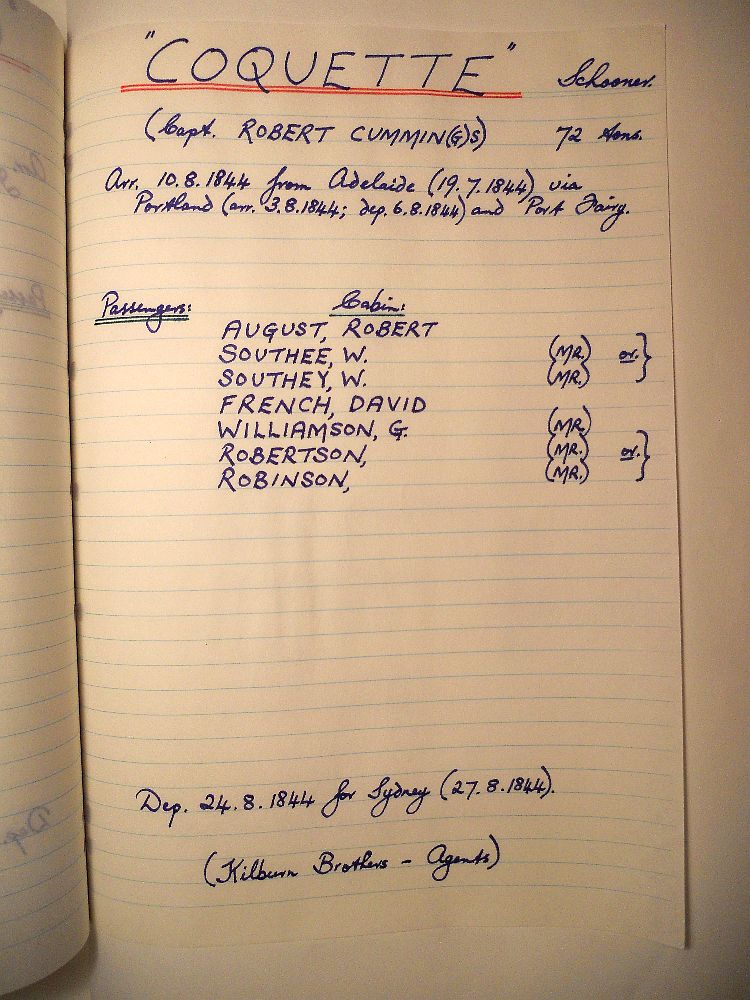 "COQUETTE" Schooner.
(Capt. ROBERT CUMMIN(G)S) 72 tons.
Arr. 10.8.1844 from Adelaide (19.7.1844) via
Portland (arr. 3.8.1844; dep. 6.8.1844) and Port Fairy.
Passengers: Cabin:
AUGUST, ROBERT
SOUTHEE, W. (MR.) or. }
SOUTHEY, W. (MR.)
FRENCH, DAVID
WILLIAMSON, G. (MR.)
ROBERTSON, (MR.) or. }
ROBINSON, (MR.)
Dep. 24.8.1844 for Sydney (27.8.1844).
(Kilburn Brothers - Agents)